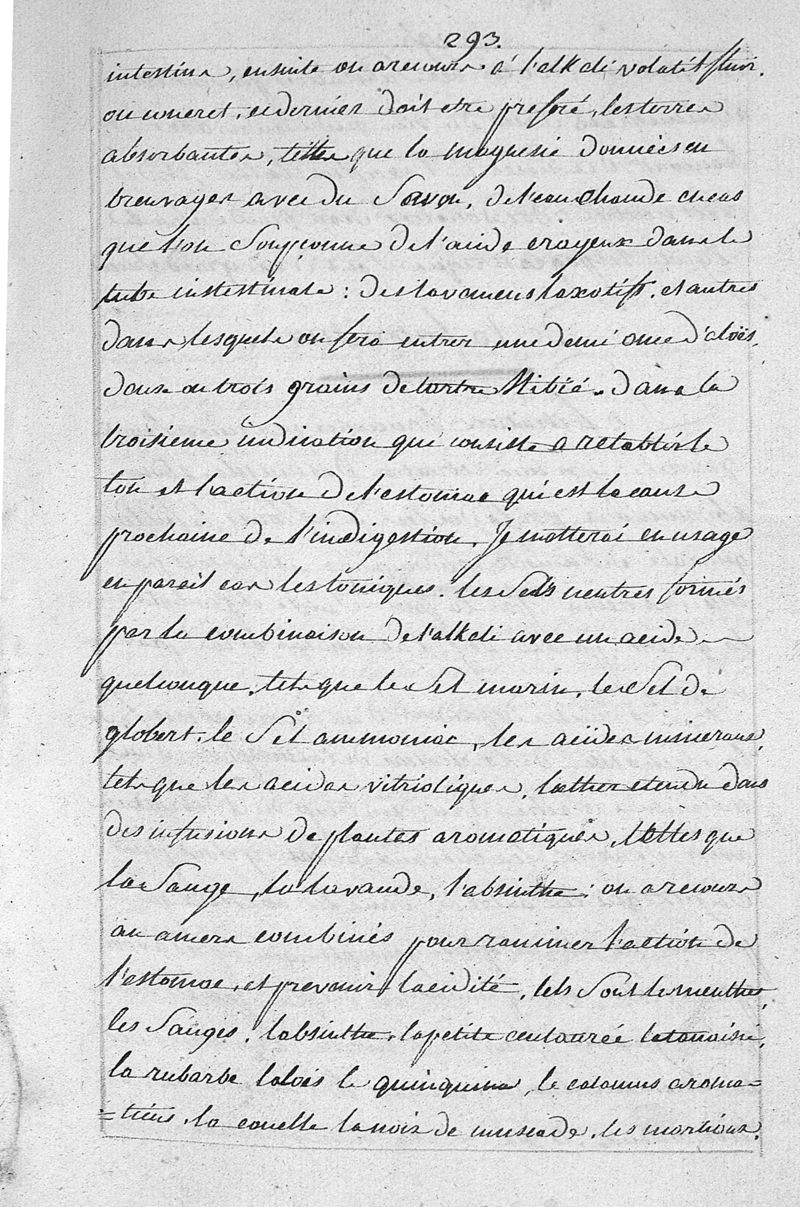 293.
intestins, ensuite on arecours á l'alkali volatil fluor.
ou concret, ce dernier doit etre preferé, les terres
absorbantes, telles que la magnesié données en
breuvages avec du Savon, de l'eau chaude en cas
que l'on Soupçonne de l'acide crayeux dans le
tube intestinale : des lavemens laxatifs, et autres
dans lesquels on fera entrer une demi once d'aloës,
deux ou trois grains de tartre Stibié. dans la
troisieme indication qui consiste a retablir le
ton et l'action de l'estomac qui est la cause
prochaine de l'indigestion, Je metterai en usage
en pareil cas les toniques. les Sels neutres formés
par la combinaison de l'alkali avec un acide
quelconque, tels que le Sel marin, le Sel de
globert, le Sel ammoniac, les acides mineraux,
tels que les acides vitrioliques, l'æther etendu dans
des infusions de plantes aromatiques, telles que
la Sauge, la lavande, l'absinthe : on arecours
au amers combinés pour ranimer l'action de
l'estomac, et prevenir l'acidité, tels Sont le menthes
les Sauges, l'absinthe, la petite centaureé la tanaisié,
la rubarbe l'aloës le quinquina, le calamus aroma=
=ticus, la canelle la noix de muscade, les martiaux.